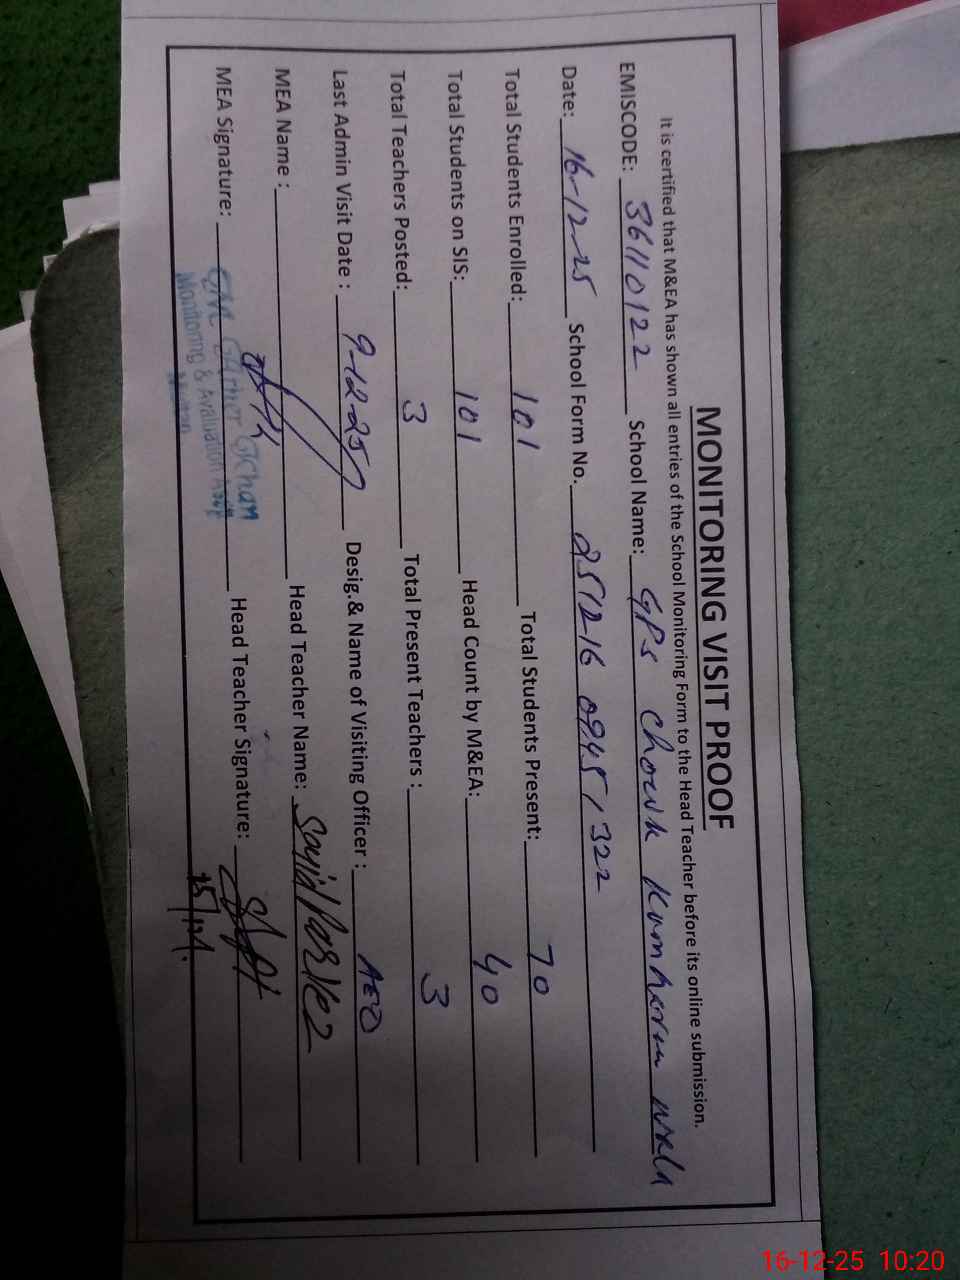 MONITORING VISIT PROOF
It is certified that M&EA has shown all entries of the School Monitoring Form to the Head Teacher before its online submission.
EMISCODE: 36110122 School Name: GPS Chowk Kumharan wala
Date: 16-12-25 School Form No. 251216 0945 / 322
Total Students Enrolled: 101 Total Students Present: 70
Total Students on SIS: 101 Head Count by M&EA: 40
Total Teachers Posted: 3 Total Present Teachers : 3
Last Admin Visit Date : 9-12-25 Desig.& Name of Visiting Officer : AEO
MEA Name : Head Teacher Name: Sajid Parvez
MEA Signature: Head Teacher Signature:
Monitoring & Evaluation
16-12-25 10:20